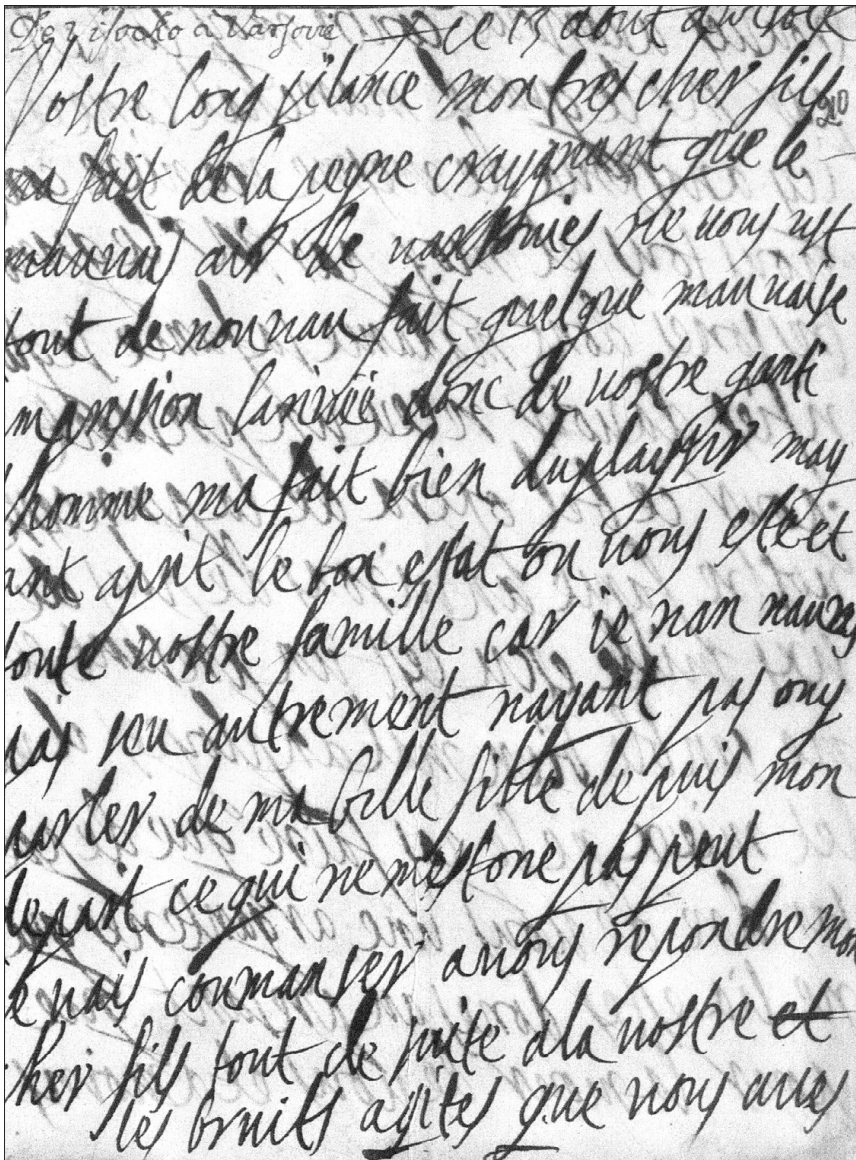 De visocko a Varsovie ce 13 aout a visock
Vostre long silance mon tres cher fils 210
ma fait de la peyne craygnant que le
mauvais air de varsovies ne vous ust
tout de nouvau fait quelque mauvaise
inprestion larivée donc de vostre genti
lhomme ma fait bien du playsir may
ant aprit le bon estat ou vous este et
toute vostre famille car ie nan naurés
pas seu autrement nayant pas ouy
parler de ma belle fille depuis mon
depart ce qui ne mestone pas peut
Ie vais coumanser a vous repondre mon
cher fils tout de suite a la vostre et
les bruits agités que vous avés